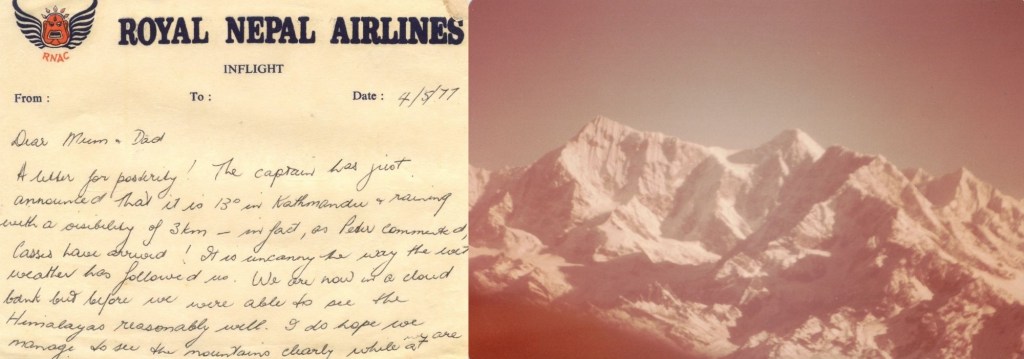 RNAC
ROYAL NEPAL AIRLINES
INFLIGHT
From : To : Date : 4/5/77
Dear Mum & Dad
A letter for posterity! The captain has just
announced that it is 13° in Kathmandu & raining
with a visibility of 3km – in fact, as Peter commented,
have arrived! It is uncanny the way the wet
weather has followed us. We are now in a cloud
bank but before we were able to see the
Himalayas reasonably well. I do hope we
manage to see the mountains clearly while we are
at